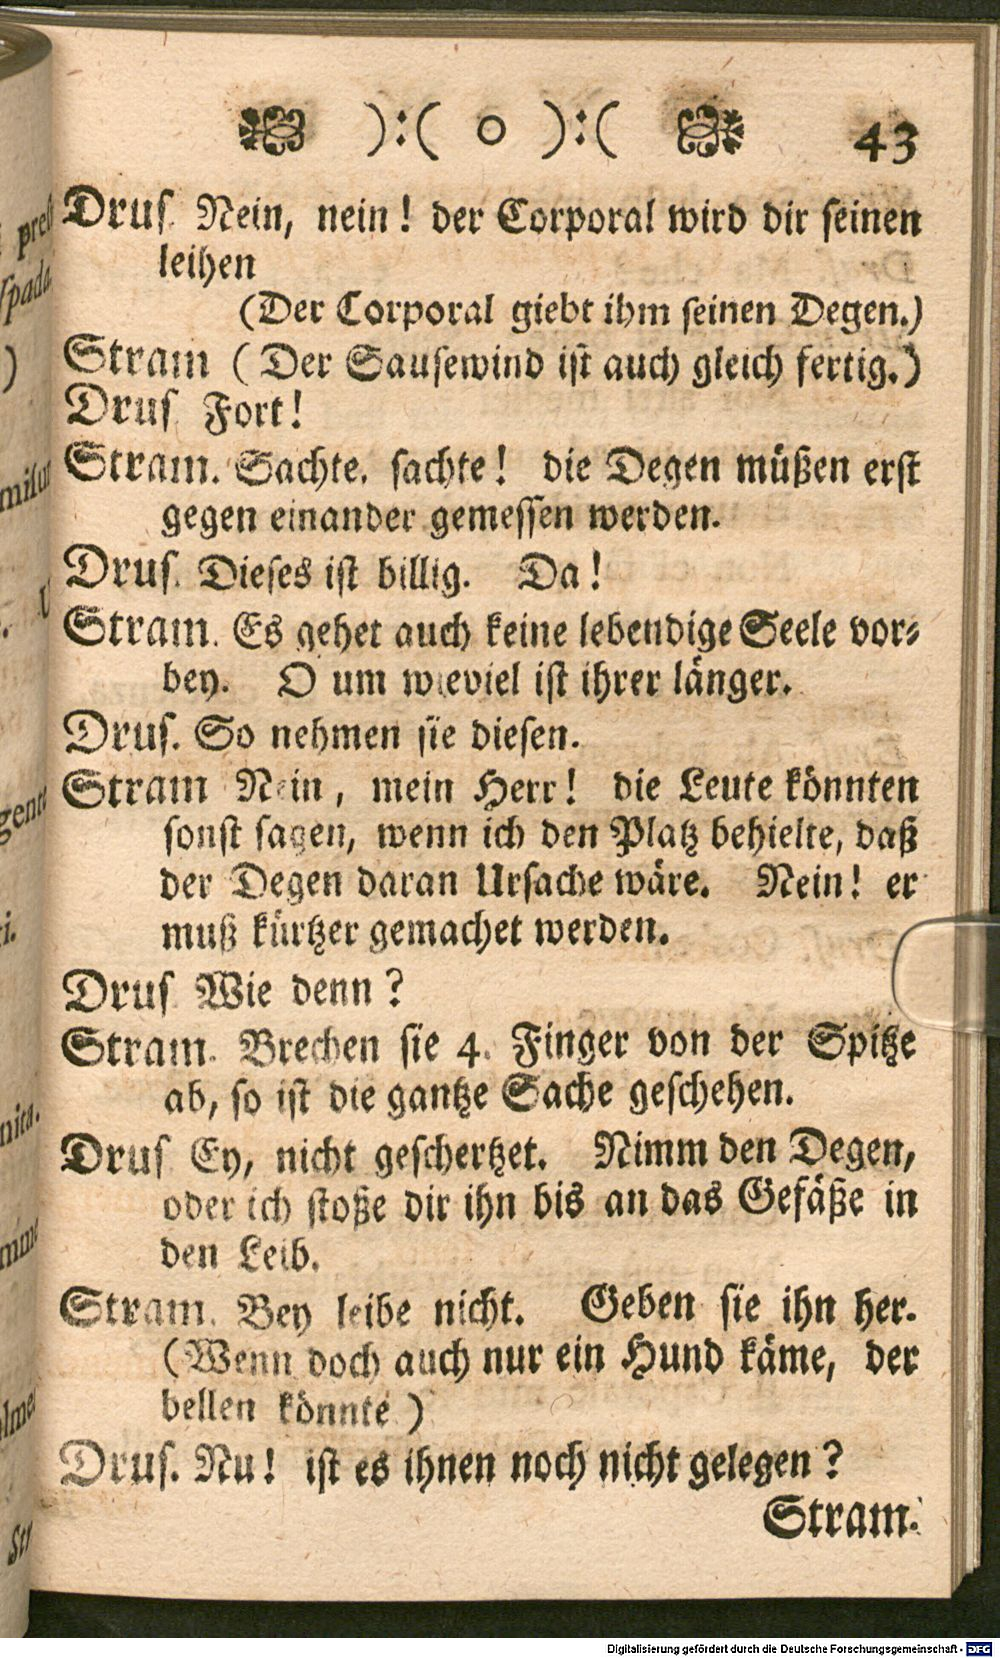 ):( o ):( 43
Drus. Nein, nein! der Corporal wird dir seinen
leihen
(Der Corporal giebt ihm seinen Degen.)
Stram (Der Sausewind ist auch gleich fertig.)
Drus Fort!
Stram. Sachte, sachte! die Degen müßen erst
gegen einander gemessen werden.
Drus. Dieses ist billig. Da!
Stram. Es gehet auch keine lebendige Seele vor-
bey. O um wieviel ist ihrer länger.
Drus. So nehmen sie diesen.
Stram Nein, mein Herr! die Leute könnten
sonst sagen, wenn ich den Platz behielte, daß
der Degen daran Ursache wäre. Nein! er
muß kürtzer gemachet werden.
Drus Wie denn?
Stram. Brechen sie 4. Finger von der Spitze
ab, so ist die gantze Sache geschehen.
Drus Ey, nicht geschertzet. Nimm den Degen,
oder ich stoße dir ihn bis an das Gefäße in
den Leib.
Stram. Bey leibe nicht. Geben sie ihn her.
(Wenn doch auch nur ein Hund käme, der
bellen könnte)
Drus. Nu! ist es ihnen noch nicht gelegen?
Stram.
Digitalisierung gefördert durch die Deutsche Forschungsgemeinschaft - DFG